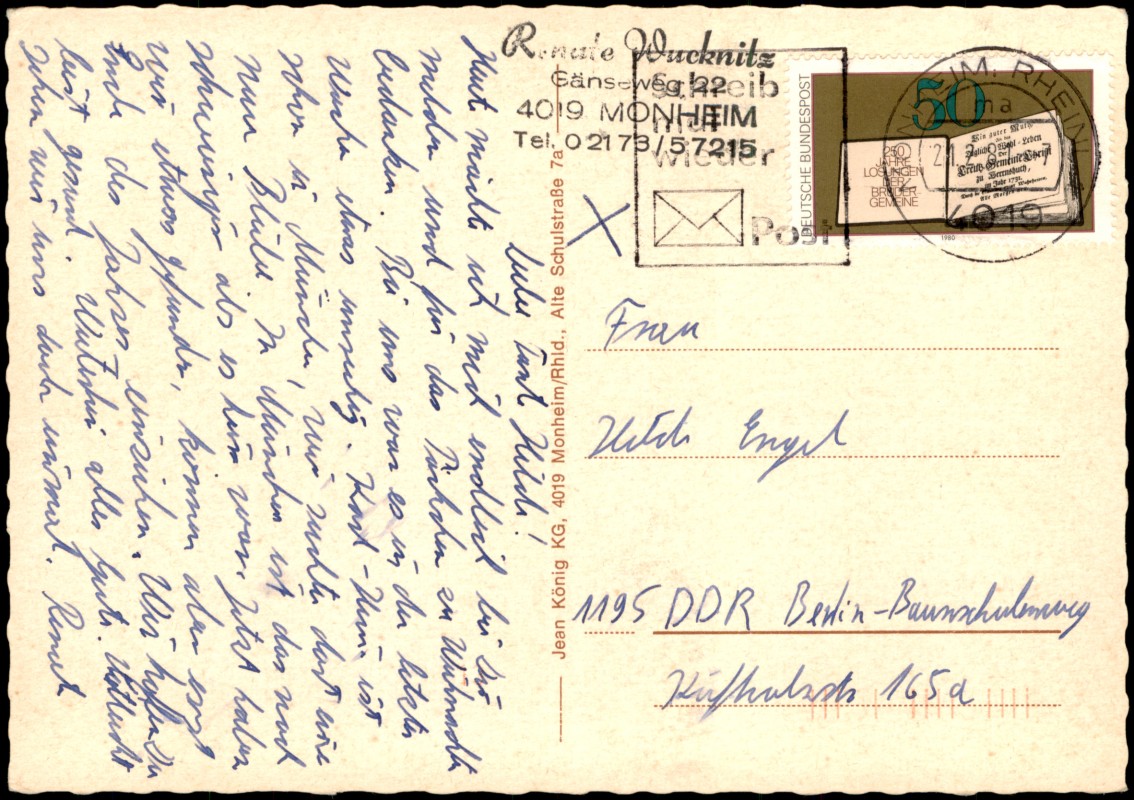 Renate Wucknitz
Gänseweg 22
4019 MONHEIM
Tel. 02173/57215
schreib
mal
wieder
Post
MONHEIM, RHEINL
ma
4019
50
DEUTSCHE BUNDESPOST
250
JAHRE
LOSUNGEN
HERZ
BRÜDER
GEMEINE
1980
Jean König KG, 4019 Monheim/Rhld., Alte Schulstraße 7a
Liebe Tant Hilde!
Heute möchte ich mich endlich bei Dir
melden und für das Päckchen zu Weihnacht
bedanken. Bei uns war es in der letzten
Woche etwas unruhig. Karl-Heinz ist
schon in München, wir suchten dort eine
neue Bleibe. In München ist das noch
schwieriger als es hier war. Jetzt haben
wir etwas gefunden, können aber erst
Ende des Jahres einziehen. Wir hoffen Du
bist gesund. Weiterhin alles Gute. Vielleicht
sehen wir uns doch einmal. Renate
Frau
Hilde Engel
1195 DDR Berlin-Baumschulenweg
Kiefholzstr 165a